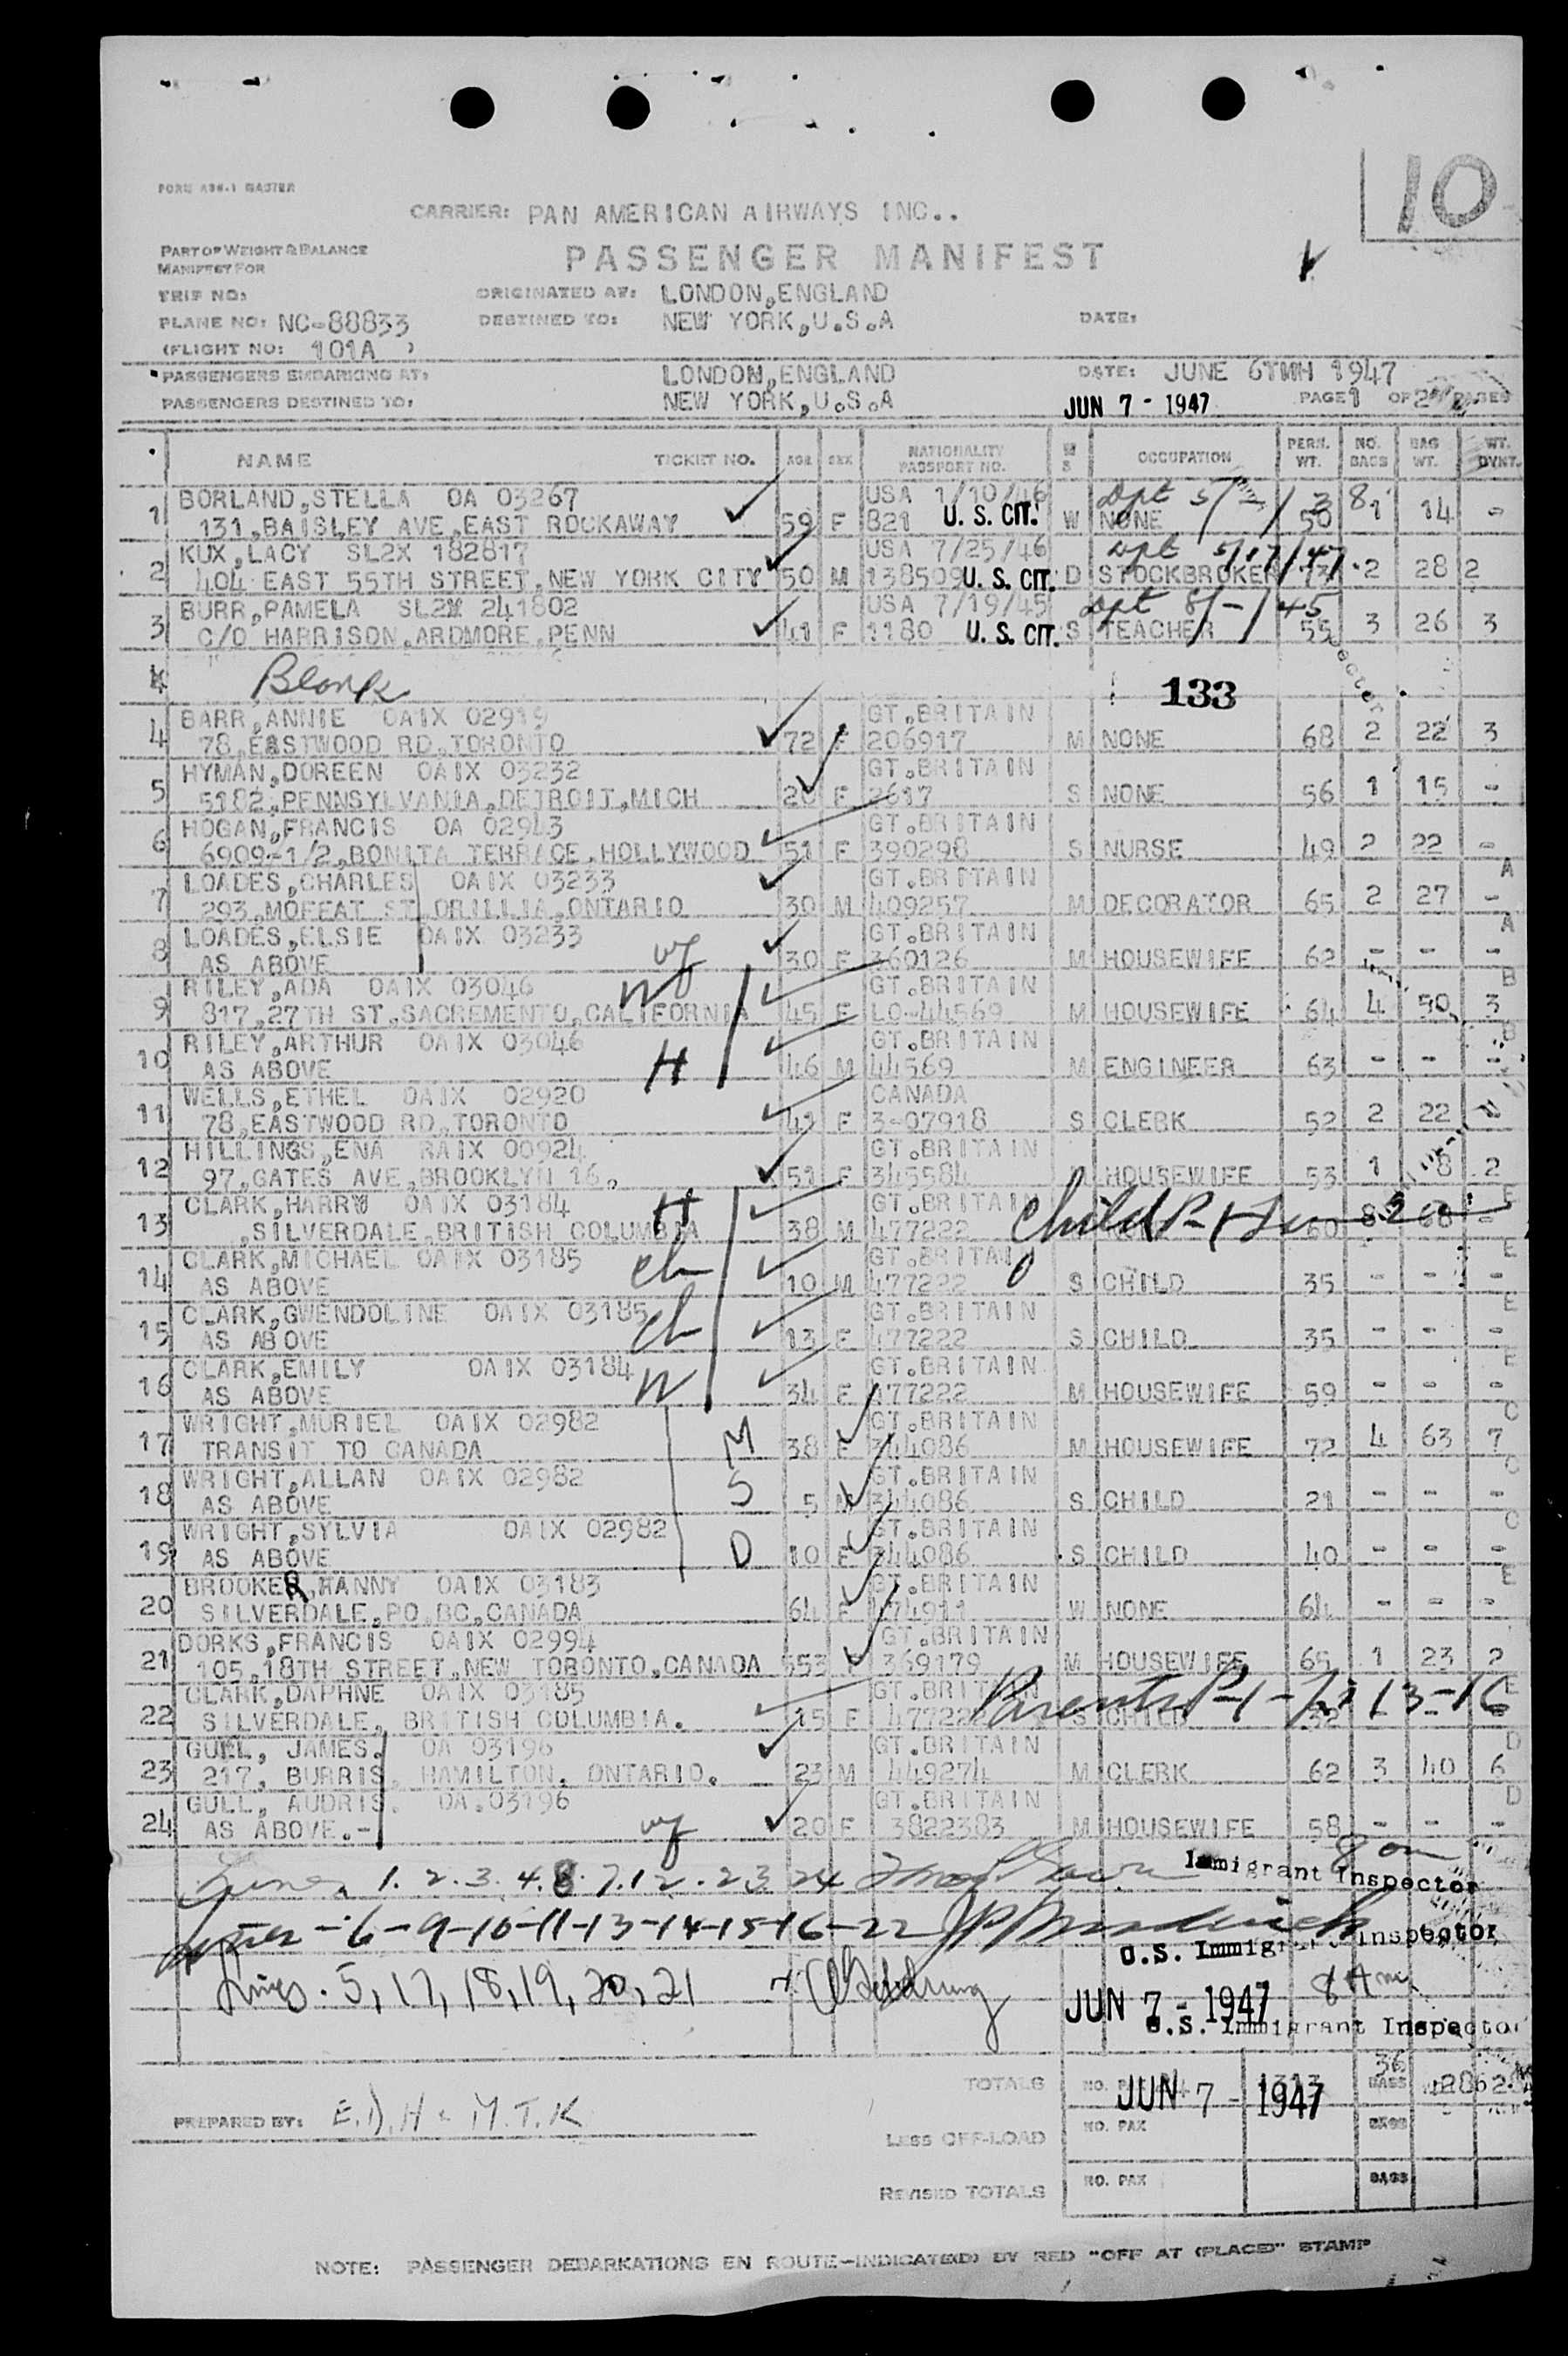 10
FORM ASW-1 MASTER
CARRIER: PAN AMERICAN AIRWAYS INC..
PART OF WEIGHT & BALANCE
MANIFEST FOR
PASSENGER MANIFEST
TRIP NO: ORIGINATED AT: LONDON,ENGLAND
PLANE NO: NC-88833 DESTINED TO: NEW YORK,U.S.A DATE:
(FLIGHT NO: 101A )
PASSENGERS EMBARKING AT: LONDON,ENGLAND DATE: JUNE 6TMH 1947
PASSENGERS DESTINED TO: NEW YORK,U.S.A JUN 7 - 1947 PAGE 1 OF 2 PAGES
NAME TICKET NO. AGE SEX NATIONALITY PASSPORT NO. M S OCCUPATION PERN. WT. NO. BAGS BAG WT. WT. OVWT.
BORLAND,STELLA OA 03267 USA 1/10/46 Dpt
1 131,BAISLEY AVE,EAST ROCKAWAY 59 F 821 U. S. CIT. W NONE 50 1 14 -
KUX,LACY SL2X 182817 USA 7/25/46 Dpt 5/17/47
2 404 EAST 55TH STREET,NEW YORK CITY 50 M 138509 U. S. CIT. D STOCKBROKER 73 2 28 2
BURR,PAMELA SL2X 241802 USA 7/19/45 Dpt 8/-/45
3 C/O HARRISON,ARDMORE,PENN 41 F 1180 U. S. CIT. S TEACHER 55 3 26 3
Blank 133
BARR,ANNIE OAIX 02919 GT.BRITAIN
4 78,EASTWOOD RD,TORONTO 72 F 206917 M NONE 68 2 22 3
HYMAN,DOREEN OAIX 03232 GT.BRITAIN
5 5182,PENNSYLVANIA,DETROIT,MICH 20 F 2617 S NONE 56 1 15 -
HOGAN,FRANCIS OA 02943 GT.BRITAIN
6 6909-1/2,BONITA TERRACE,HOLLYWOOD 51 F 390298 S NURSE 49 2 22 -
LOADES,CHARLES OAIX 03233 GT.BRITAIN A
7 293,MOFFAT ST,ORILLIA,ONTARIO 30 M 409257 M DECORATOR 65 2 27 -
LOADES,ELSIE OAIX 03233 GT.BRITAIN A
8 AS ABOVE wf 30 F 360126 M HOUSEWIFE 62 - - -
RILEY,ADA OAIX 03046 wf GT.BRITAIN B
9 817,27TH ST,SACREMENTO,CALIFORNIA 45 F LO-44569 M HOUSEWIFE 64 4 50 3
RILEY,ARTHUR OAIX 03046 GT.BRITAIN B
10 AS ABOVE H 46 M 44569 M ENGINEER 63 - - -
WELLS,ETHEL OAIX 02920 CANADA
11 78,EASTWOOD RD,TORONTO 41 F 3-07918 S CLERK 52 2 22 -
HILLINGS,ENA RAIX 00924 GT.BRITAIN
12 97,GATES AVE,BROOKLYN 16, 51 F 345584 HOUSEWIFE 53 1 8 2
CLARK,HARRY OAIX 03184 H GT.BRITAIN Child P- E
13 ,SILVERDALE,BRITISH COLUMBIA 38 M 477222 60 68 -
CLARK,MICHAEL OAIX 03185 ch GT.BRITAIN E
14 AS ABOVE 10 M 477222 S CHILD 35 - - -
CLARK,GWENDOLINE OAIX 03185 GT.BRITAIN E
15 AS ABOVE ch 13 F 477222 S CHILD 35 - - -
CLARK,EMILY OAIX 03184 GT.BRITAIN E
16 AS ABOVE W 34 F 477222 M HOUSEWIFE 59 - - -
WRIGHT,MURIEL OAIX 02982 GT.BRITAIN C
17 TRANSIT TO CANADA M 38 F 344086 M HOUSEWIFE 72 4 63 7
WRIGHT,ALLAN OAIX 02982 S GT.BRITAIN C
18 AS ABOVE 5 M 344086 S CHILD 21 - - -
WRIGHT,SYLVIA OAIX 02982 GT.BRITAIN C
19 AS ABOVE D 10 F 344086 S CHILD 40 - - -
BROOKER,HANNY OAIX 03183 GT.BRITAIN E
20 SILVERDALE,PO,BC,CANADA 64 F 474911 W NONE 64 - - -
DORKS,FRANCIS OAIX 02994 GT.BRITAIN
21 105,18TH STREET,NEW TORONTO,CANADA 553 F 369179 M HOUSEWIFE 65 1 23 2
CLARK,DAPHNE OAIX 03185 GT.BRITAIN Parents P-1- 13-16 E
22 SILVERDALE, BRITISH COLUMBIA. 15 F 47722 S CHILD - -
GULL, JAMES. OA 03196 GT.BRITAIN D
23 217, BURRIS, HAMILTON, ONTARIO. 23 M 449274 M CLERK 62 3 40 6
GULL, AUDRIS. OA.03196 GT.BRITAIN D
24 AS ABOVE.- wf 20 F 3822383 M HOUSEWIFE 58 - - -
Lines 1. 2. 3. 4. 8. 7. 12. 23 24 8 am
Immigrant Inspector
Lines -6-9-10-11-13-14-15-16-22
U.S. Immigrant Inspector
Lines. 5, 17, 18, 19, 20, 21 JUN 7 - 1947 8 Am
U.S. Immigrant Inspector
TOTALS NO. PAX 1313 36 BAGS
JUN 7 - 1947
PREPARED BY: E.D.H & M.T.K
LESS OFF-LOAD NO. PAX BAGS
REVISED TOTALS NO. PAX BAGS
NOTE: PASSENGER DEBARKATIONS EN ROUTE-INDICATED BY RED "OFF AT (PLACE)" STAMP